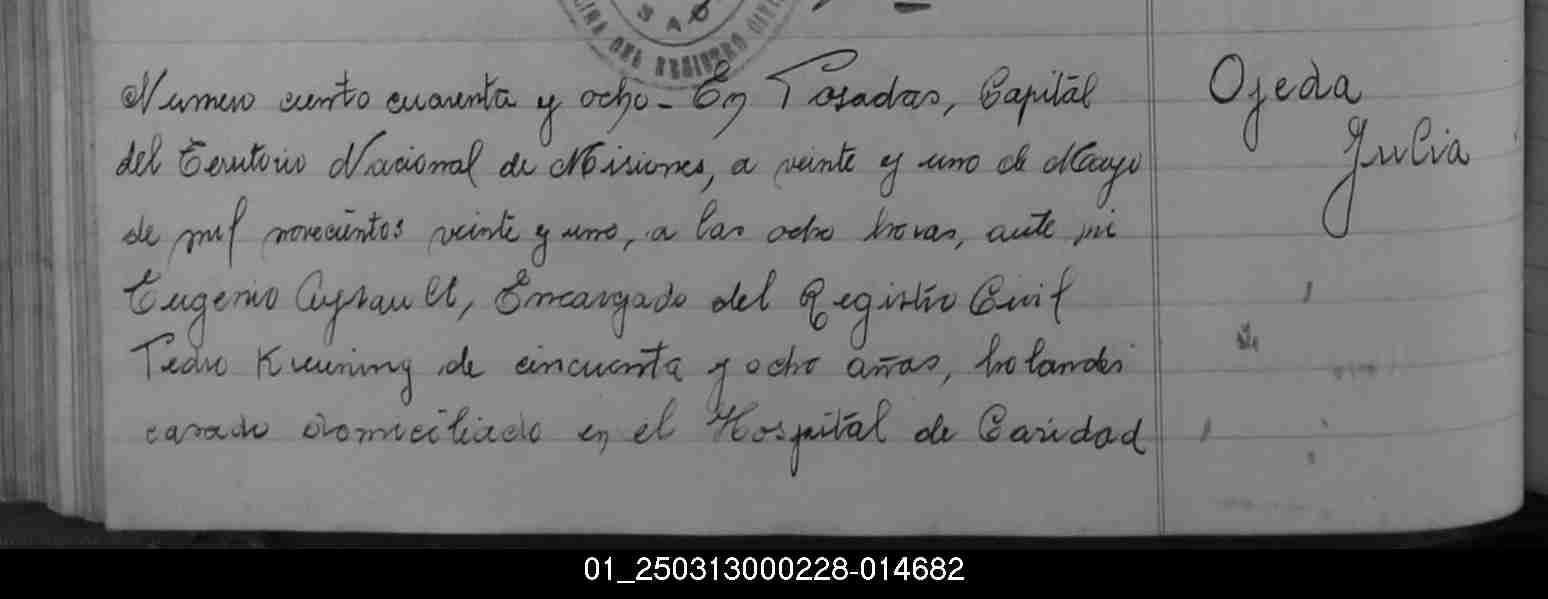 SAD
OFICINA DEL REGISTRO CIVIL
Numero ciento cuarenta y ocho - En Posadas, Capital
del Territorio Nacional de Misiones, a veinte y uno de Mayo
de mil novecientos veinte y uno, a las ocho horas, ante mi
Eugenio Ayrault, Encargado del Registro Civil
Pedro Kreuning de cincuenta y ocho años, holandes
casado domiciliado en el Hospital de Caridad
Ojeda
Julia
01_250313000228-014682